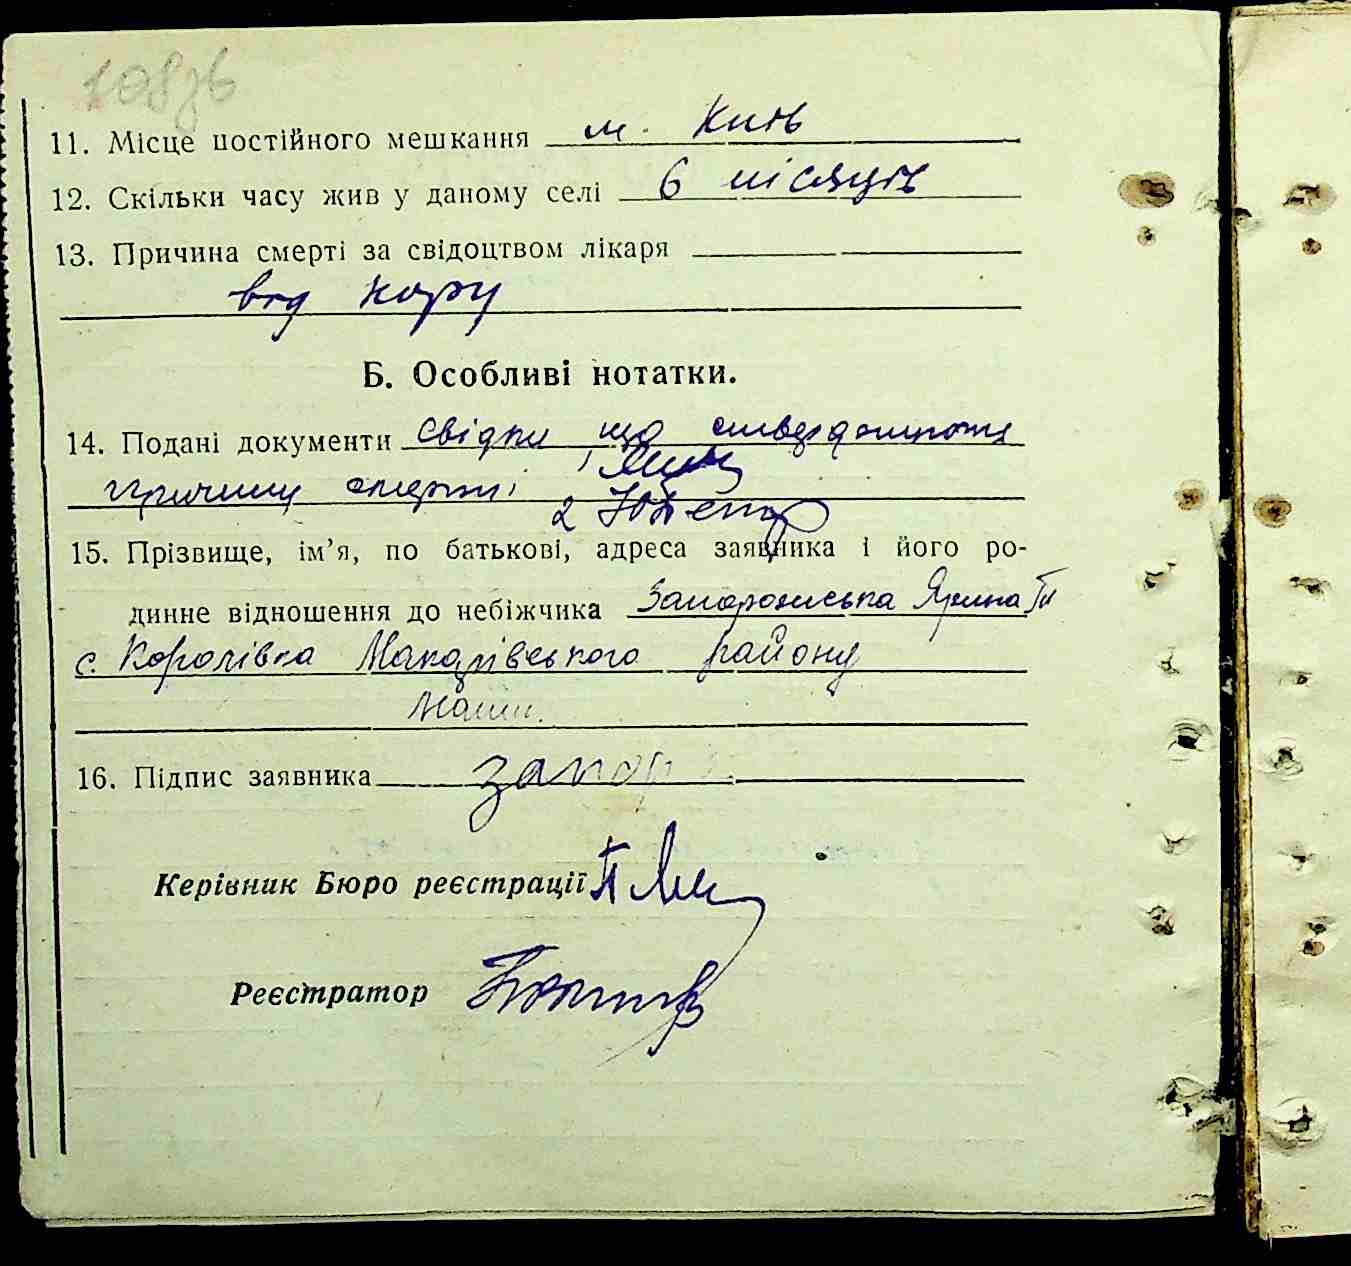 108зв
11. Місце постійного мешкання м. Київ
12. Скільки часу жив у даному селі 6 місяців
13. Причина смерті за свідоцтвом лікаря
від кору
Б. Особливі нотатки.
14. Подані документи свідки що стверджують
причину смерті 1
2
15. Прізвище, ім’я, по батькові, адреса заявника і його ро-
динне відношення до небіжчика Запорожська Ярина
с. Королівка Макарівського району
мати.
16. Підпис заявника Запор
Керівник Бюро реєстрації
Реєстратор